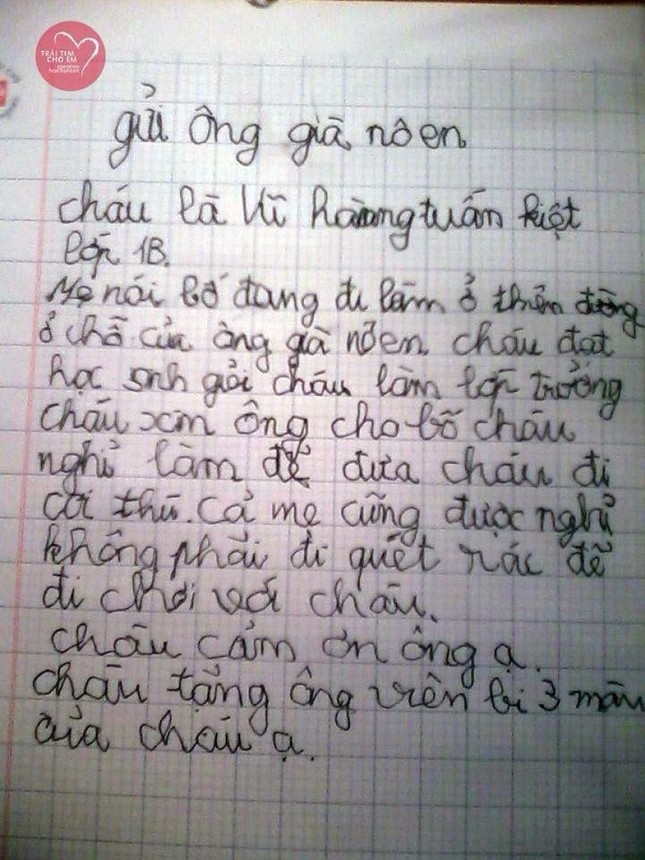 TRÁI TIM
CHO EM
gửi ông già nô en
cháu là Vi hoàng tuấn kiệt
lớp 1B.
Mẹ nói bố đang đi làm ở thiên đường
ở chỗ của ông già nô en cháu đạt
học sinh giỏi cháu làm lớp trưởng
cháu xin ông cho bố cháu
nghỉ làm để đưa cháu đi
coi thú. Cả mẹ cũng được nghỉ
không phải đi quét rác để
đi chơi với cháu.
cháu cảm ơn ông ạ.
cháu tặng ông viên bi 3 màu
của cháu ạ.